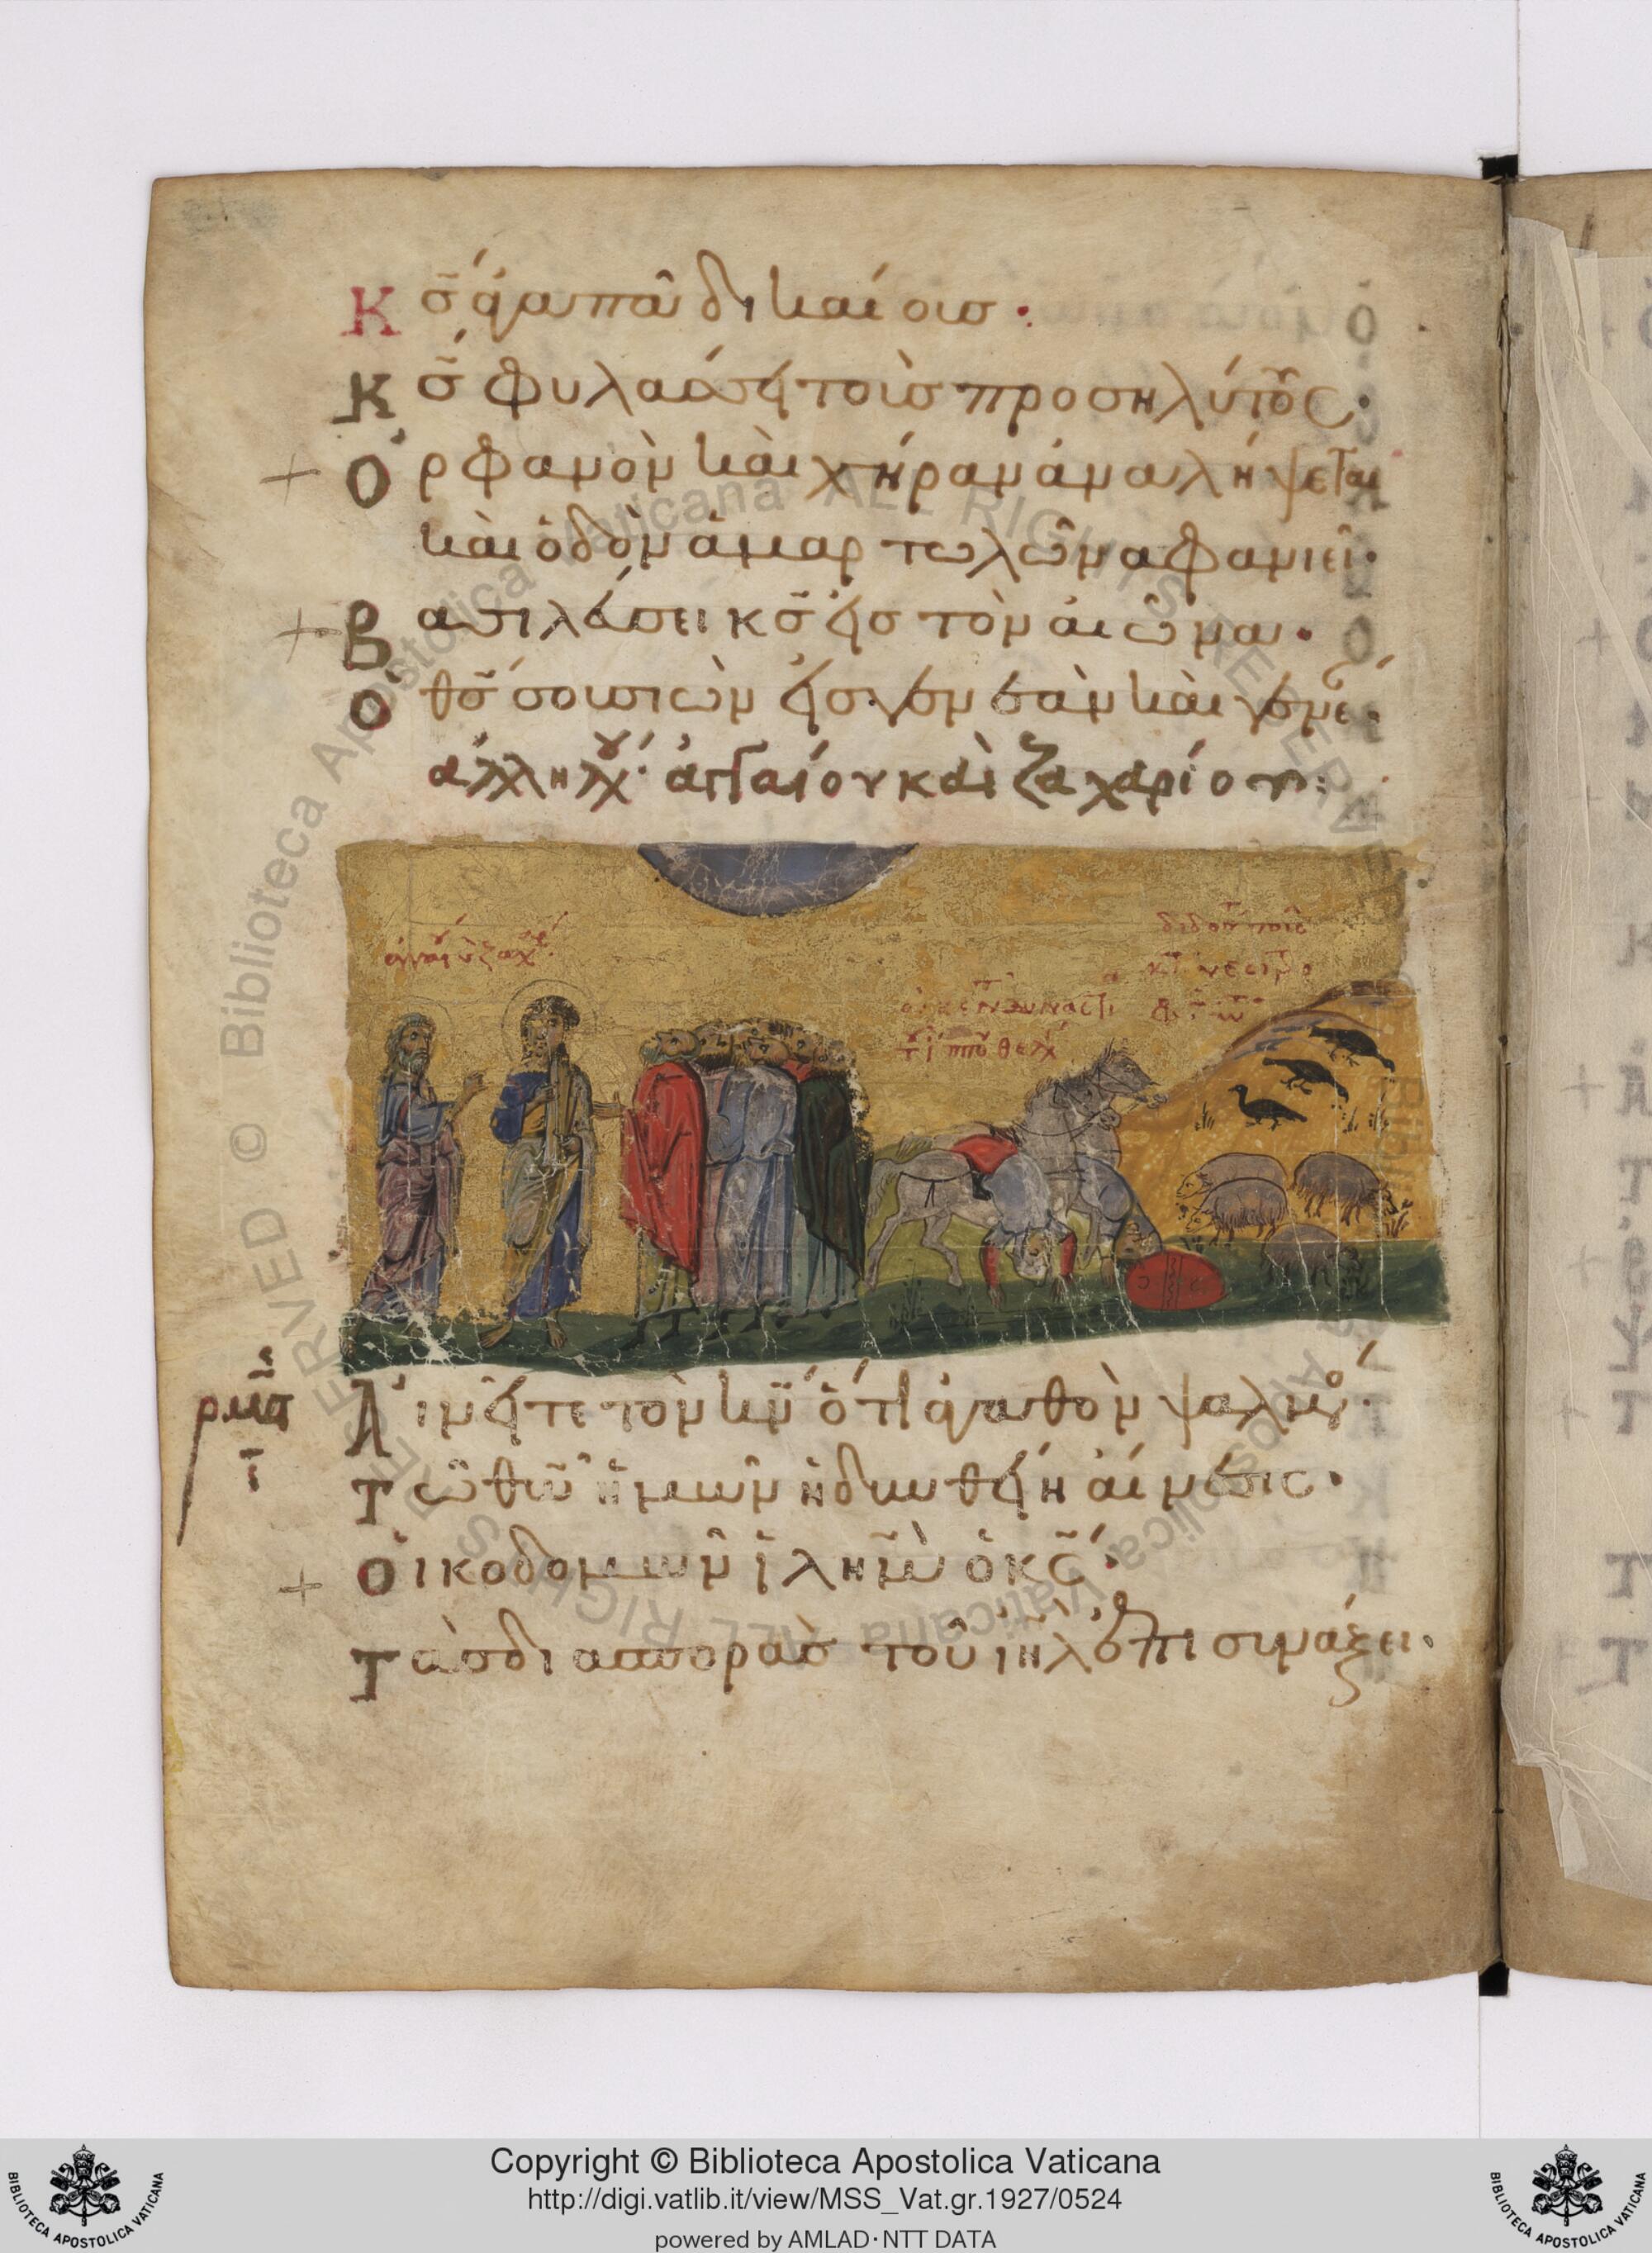 Κς̅ ἀγαπᾶ δικαίους·
Κς̅ φυλάσσει τοὺς προσηλύτους·
Ὀρφανὸν καὶ χήραν ἀναλήψεται
καὶ ὁδὸν ἁμαρτωλῶν ἀφανιεῖ·
Βασιλεύσει κς̅ εἰς τὸν αἰῶνα·
Ὁ θς̅ σου σιὼν εἰς γενεὰν καὶ γενε·
ἀλληλ· ἀγγαίου καὶ ζαχαρίου:
ρμ̅ϛ
Αἰνεῖτε τὸν κν̅ ὅτι ἀγαθὸν ψαλμό·
Τῶ θω̅ ἡμῶν ἡδυνθείη αἴνεσις·
Οἰκοδομῶν ἱλημ̅ ὁ κς̅·
Τὰς διασπορὰς τοῦ ιηλ̅ ἐπισυνάξει·
Biblioteca Apostolica Vaticana ALL RIGHTS RESERVED ©
Copyright © Biblioteca Apostolica Vaticana
http://digi.vatlib.it/view/MSS_Vat.gr.1927/0524
powered by AMLAD·NTT DATA
BIBLIOTECA APOSTOLICA VATICANA
BIBLIOTECA APOSTOLICA VATICANA